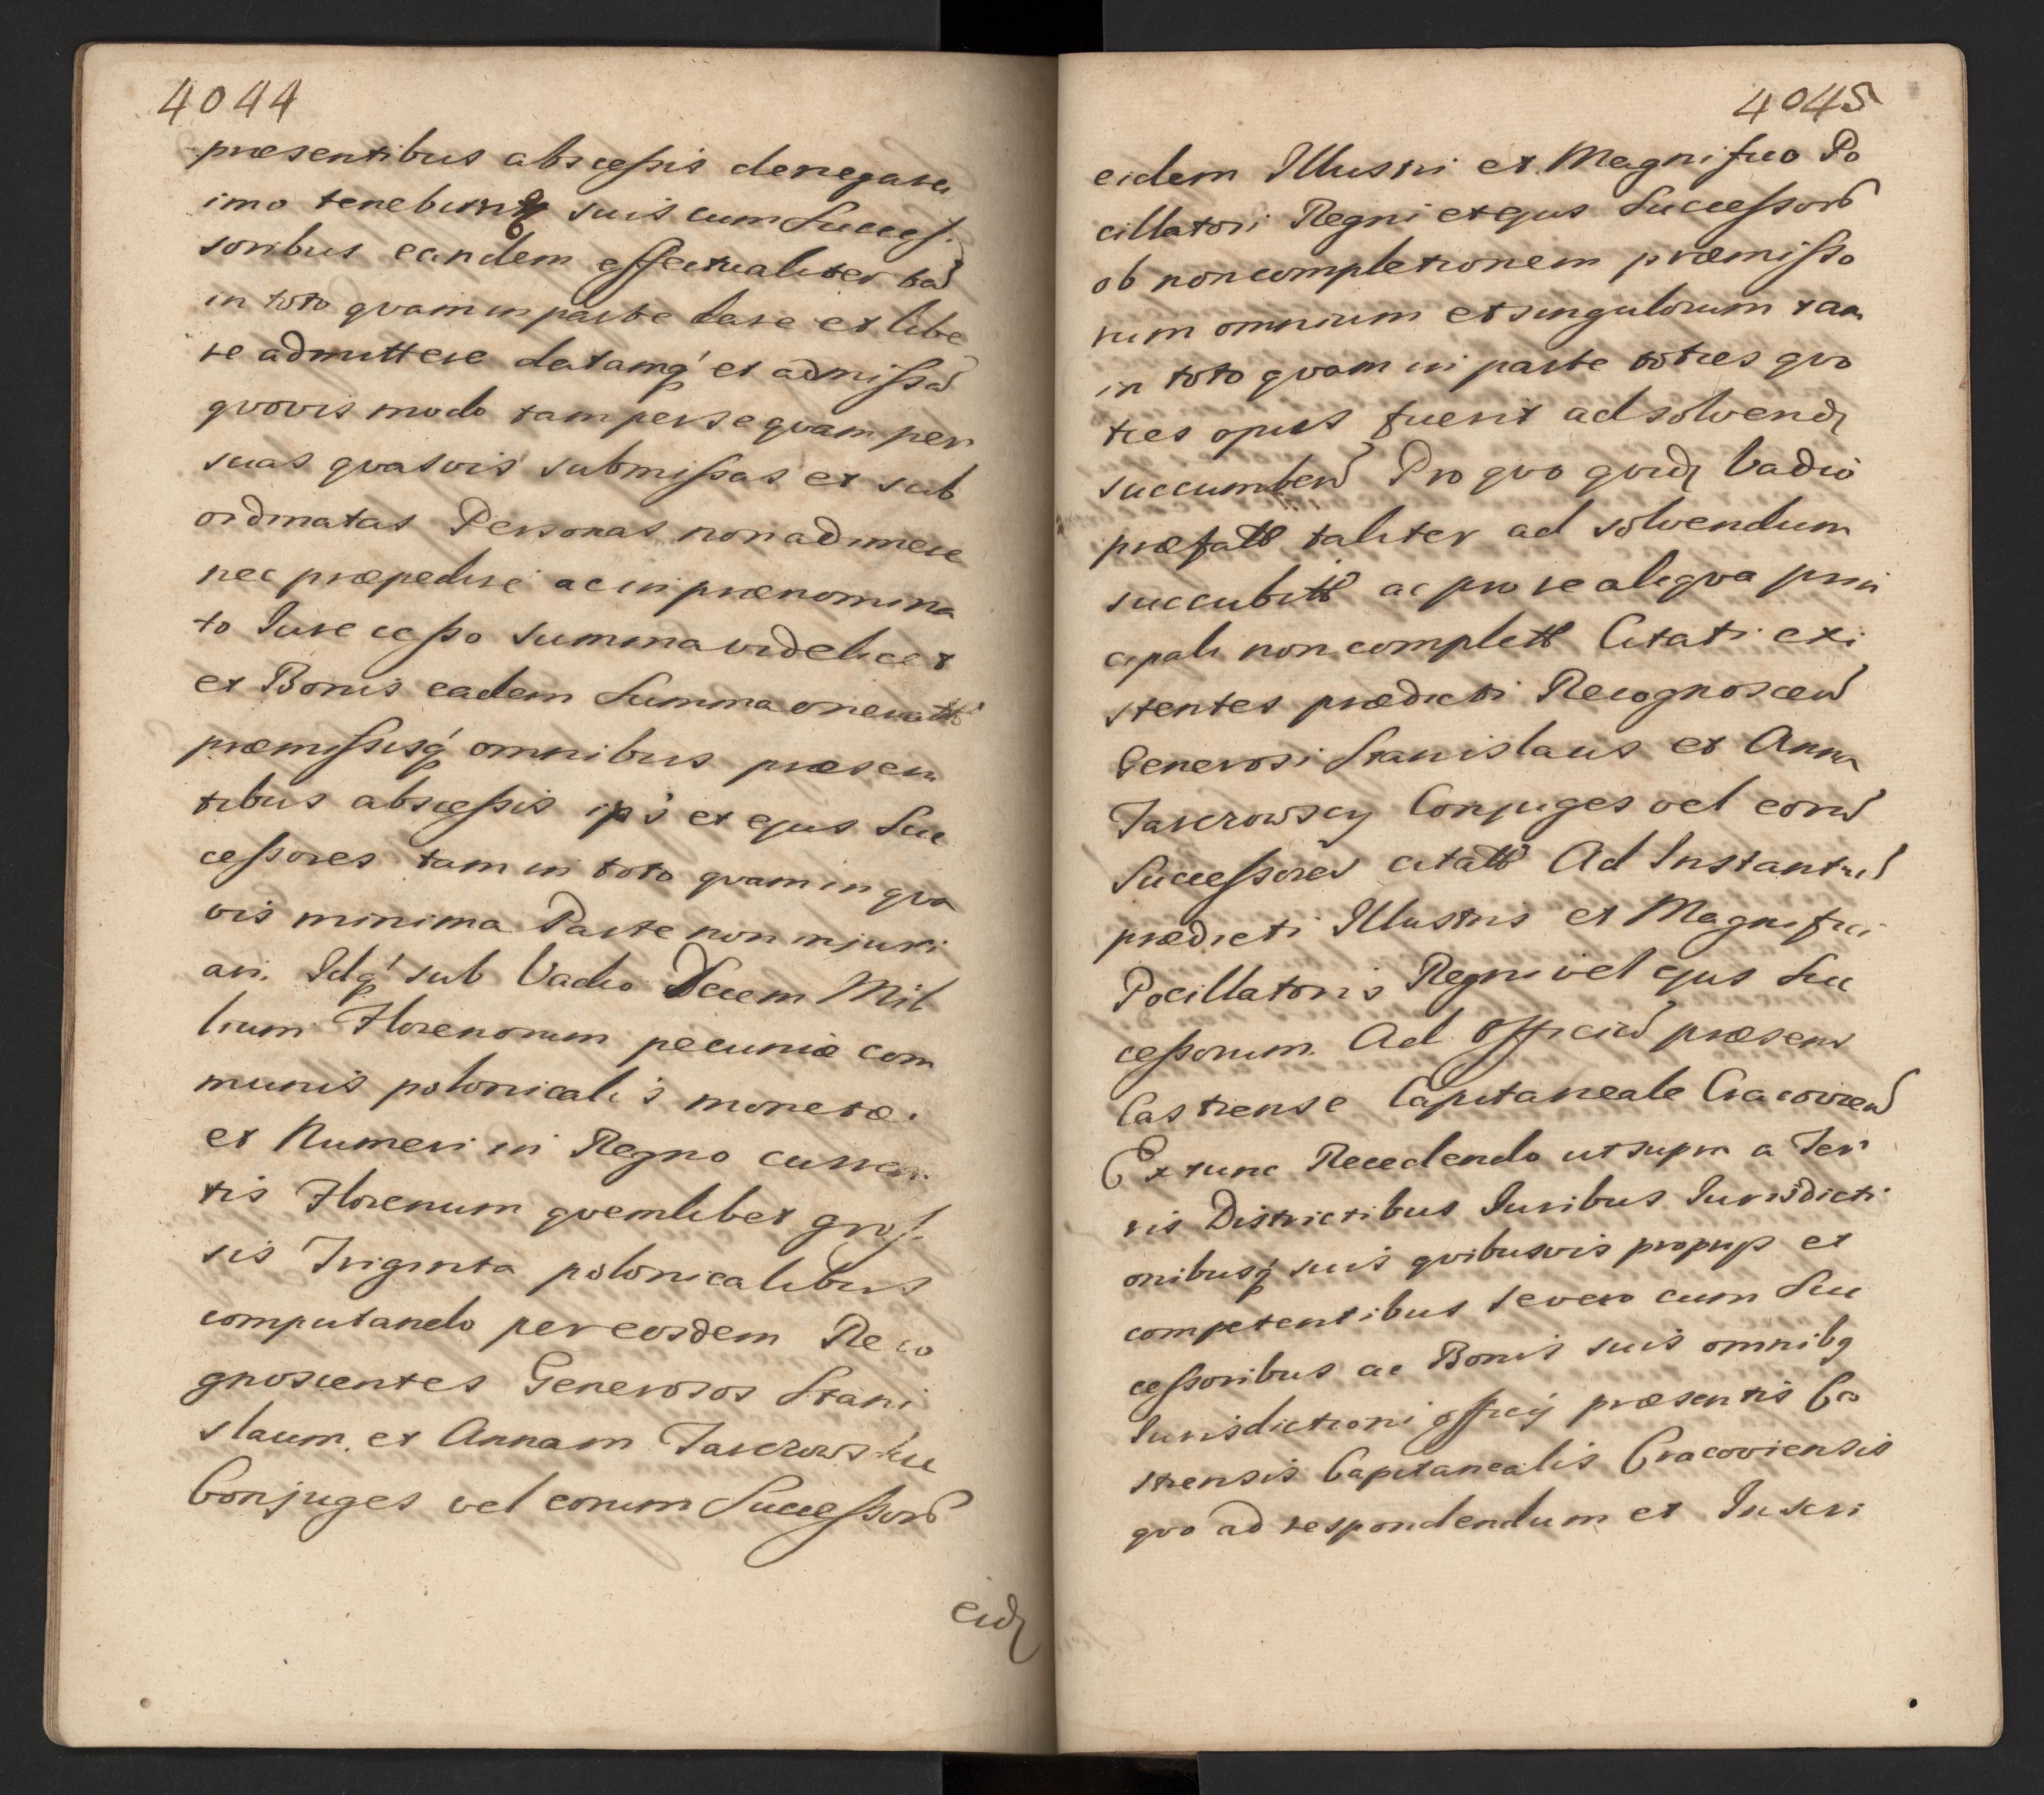 4044
præsentibus abscessis denegare
imo tenebuntur suis cum Succes
soribus eandem effectualiter tam
in toto qvam in parte dare et libe
re admittere datamq́ et admissam
qvovis modo tam per se qvam per
suas qvasvis submissas et sub
ordinatas Personas non adimere
nec præpedire ac in prænomina
to Iure cesso summa videlicet
et Bonis eadem Summa onerattis
præmissisq́ omnibus præsen
tibus abscessis ipś et ejus Suc
cessores tam in toto qvam in qva
vis minima Parte non injuri
ari. Idq́ sub Vadio Decem Mil
lium Florenorum pecuniæ com
munis polonicalis monetæ.
et Numeri in Regno curren
tis Florenum qvemlibet gros
sis Triginta polonicalibus
computando per eosdem Reco
gnoscentes Generosos Stani
slaum et Annam Jaxrowskie
Conjuges vel eorum Successores
eidem
4045
eidem Illustri et Magnifico Po
cillatori Regni et ejus Successores
ob non completionem præmisso
rum omnium et singulorum tam
in toto qvam in parte toties qvo
ties opus fuerit ad solvendum
succumbend Pro qvo qvidem Vadio
præfatt taliter ad solvendum
succubitt ac pro re aliqva prin
cipali non complett Citati exi
stentes prædicti Recognoscen
Generosi Stanislaus et Anna
Jaxrowscy Conjuges vel eorum
Successores citatt Ad Instantiam
prædicti Illustris et Magnifici
Pocillatoris Regni vel ejus Suc
cessorum. Ad Officium præsens
Castrense Capitaneale Cracovien
Ex tunc Recedendo ut supra a Ter
ris Districtibus Iuribus Iurisdicti
onibusq́ suis qvibusvis proprijs et
competentibus se vero cum Suc
cessoribus ac Bonis suis omnibq
Iurisdictioni officij præsentis Ca
strensis Capitanealis Cracoviensis
qvo ad respondendum et Inscri